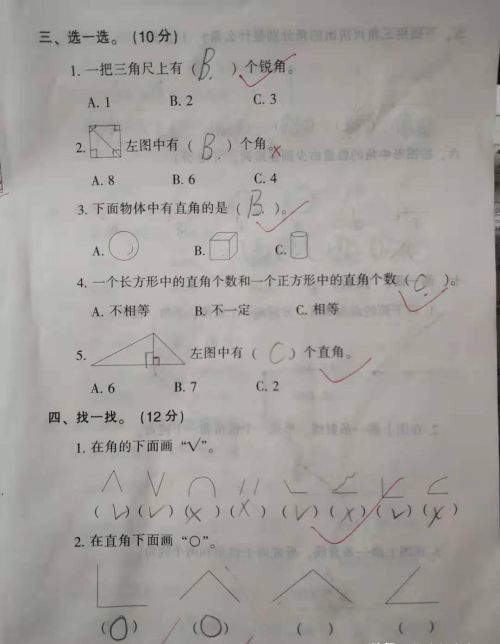 三、选一选。（10分）
1. 一把三角尺上有（ B. ）个锐角。
A. 1 B. 2 C. 3
2. 左图中有（ B. ）个角。
A. 8 B. 6 C. 4
3. 下面物体中有直角的是（ B. ）。
A. B. C.
4. 一个长方形中的直角个数和一个正方形中的直角个数（ C. ）。
A. 不相等 B. 不一定 C. 相等
5. 左图中有（ C ）个直角。
A. 6 B. 7 C. 2
四、找一找。（12分）
1. 在角的下面画“√”。
（√）（√）（×）（×）（√）（×）（√）（×）
2. 在直角下面画“○”。
（○）（○）（ ）（ ）